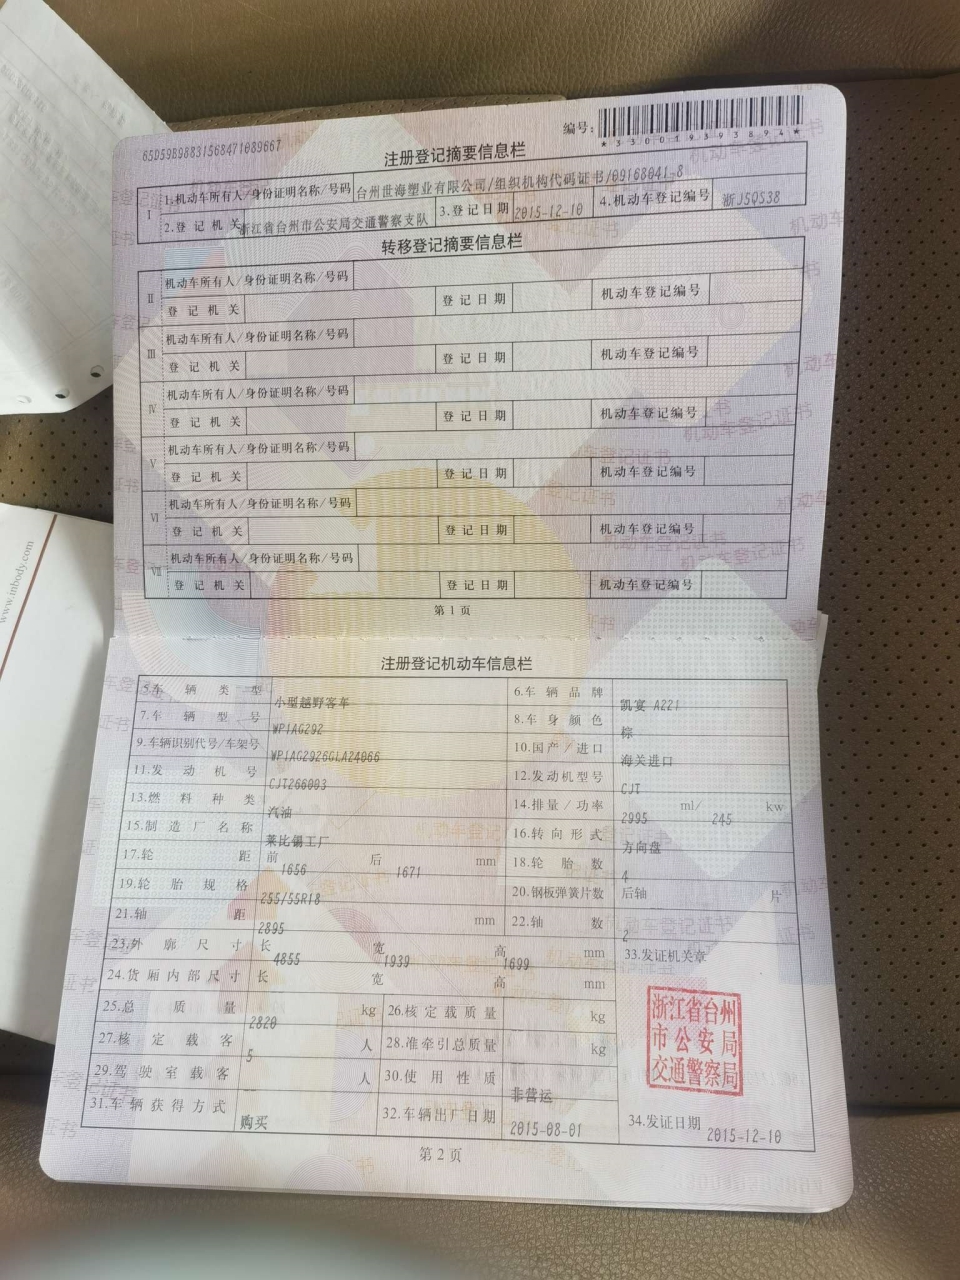 65D59B9883156847108966?
编号：
*330019393894*
注册登记摘要信息栏
I 1.机动车所有人/身份证明名称/号码 台州世海塑业有限公司/组织机构代码证书/09168041-8
2.登记机关 浙江省台州市公安局交通警察支队 3.登记日期 2015-12-10 4.机动车登记编号 浙J5Q538
转移登记摘要信息栏
II 机动车所有人/身份证明名称/号码
登记机关 登记日期 机动车登记编号
III 机动车所有人/身份证明名称/号码
登记机关 登记日期 机动车登记编号
IV 机动车所有人/身份证明名称/号码
登记机关 登记日期 机动车登记编号
V 机动车所有人/身份证明名称/号码
登记机关 登记日期 机动车登记编号
VI 机动车所有人/身份证明名称/号码
登记机关 登记日期 机动车登记编号
VII 机动车所有人/身份证明名称/号码
登记机关 登记日期 机动车登记编号
第1页
www.inbody.com
注册登记机动车信息栏
5.车辆类型 小型越野客车 6.车辆品牌 凯宴 A221
7.车辆型号 WP1AG292 8.车身颜色 棕
9.车辆识别代号/车架号 WP1AG2926GLA24066 10.国产/进口 海关进口
11.发动机号 CJT266093 12.发动机型号 CJT
13.燃料种类 汽油 14.排量/功率 2995 ml/ 245 kw
15.制造厂名称 莱比锡工厂 16.转向形式 方向盘
17.轮距 前 1656 后 1671 mm 18.轮胎数 4
19.轮胎规格 255/55R18 20.钢板弹簧片数 后轴 片
21.轴距 2895 mm 22.轴数 2
23.外廓尺寸 长 4855 宽 1939 高 1699 mm 33.发证机关章
24.货厢内部尺寸 长 宽 高 mm
浙江省台州
市公安局
交通警察局
25.总质量 2820 kg 26.核定载质量 kg
27.核定载客 5 人 28.准牵引总质量 kg
29.驾驶室载客 人 30.使用性质 非营运
31.车辆获得方式 购买 32.车辆出厂日期 2015-08-01 34.发证日期 2015-12-10
第2页